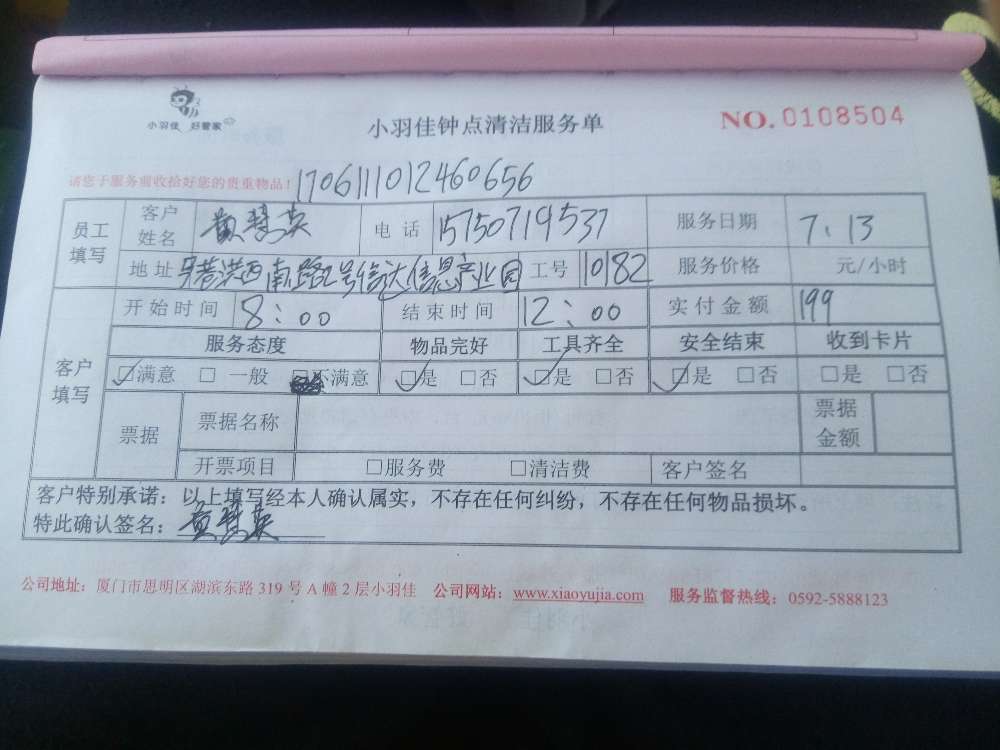 小羽佳 好管家
小羽佳钟点清洁服务单
NO.0108504
请您于服务前收拾好您的贵重物品! 1706111012460656
员工填写 客户姓名 黄慧英 电话 15750719537 服务日期 7.13
地址 西南路2号信达信息产业园 工号 10182 服务价格 元/小时
客户填写 开始时间 8:00 结束时间 12:00 实付金额 199
服务态度 物品完好 工具齐全 安全结束 收到卡片
☑满意 □ 一般 不满意 ☑是 □否 ☑是 □否 ☑是 □否 □是 □否
票据 票据名称 票据金额
开票项目 □服务费 □清洁费 客户签名
客户特别承诺:以上填写经本人确认属实,不存在任何纠纷,不存在任何物品损坏。
特此确认签名:黄慧英
公司地址:厦门市思明区湖滨东路 319 号 A 幢 2 层小羽佳 公司网站:www.xiaoyujia.com 服务监督热线:0592-5888123